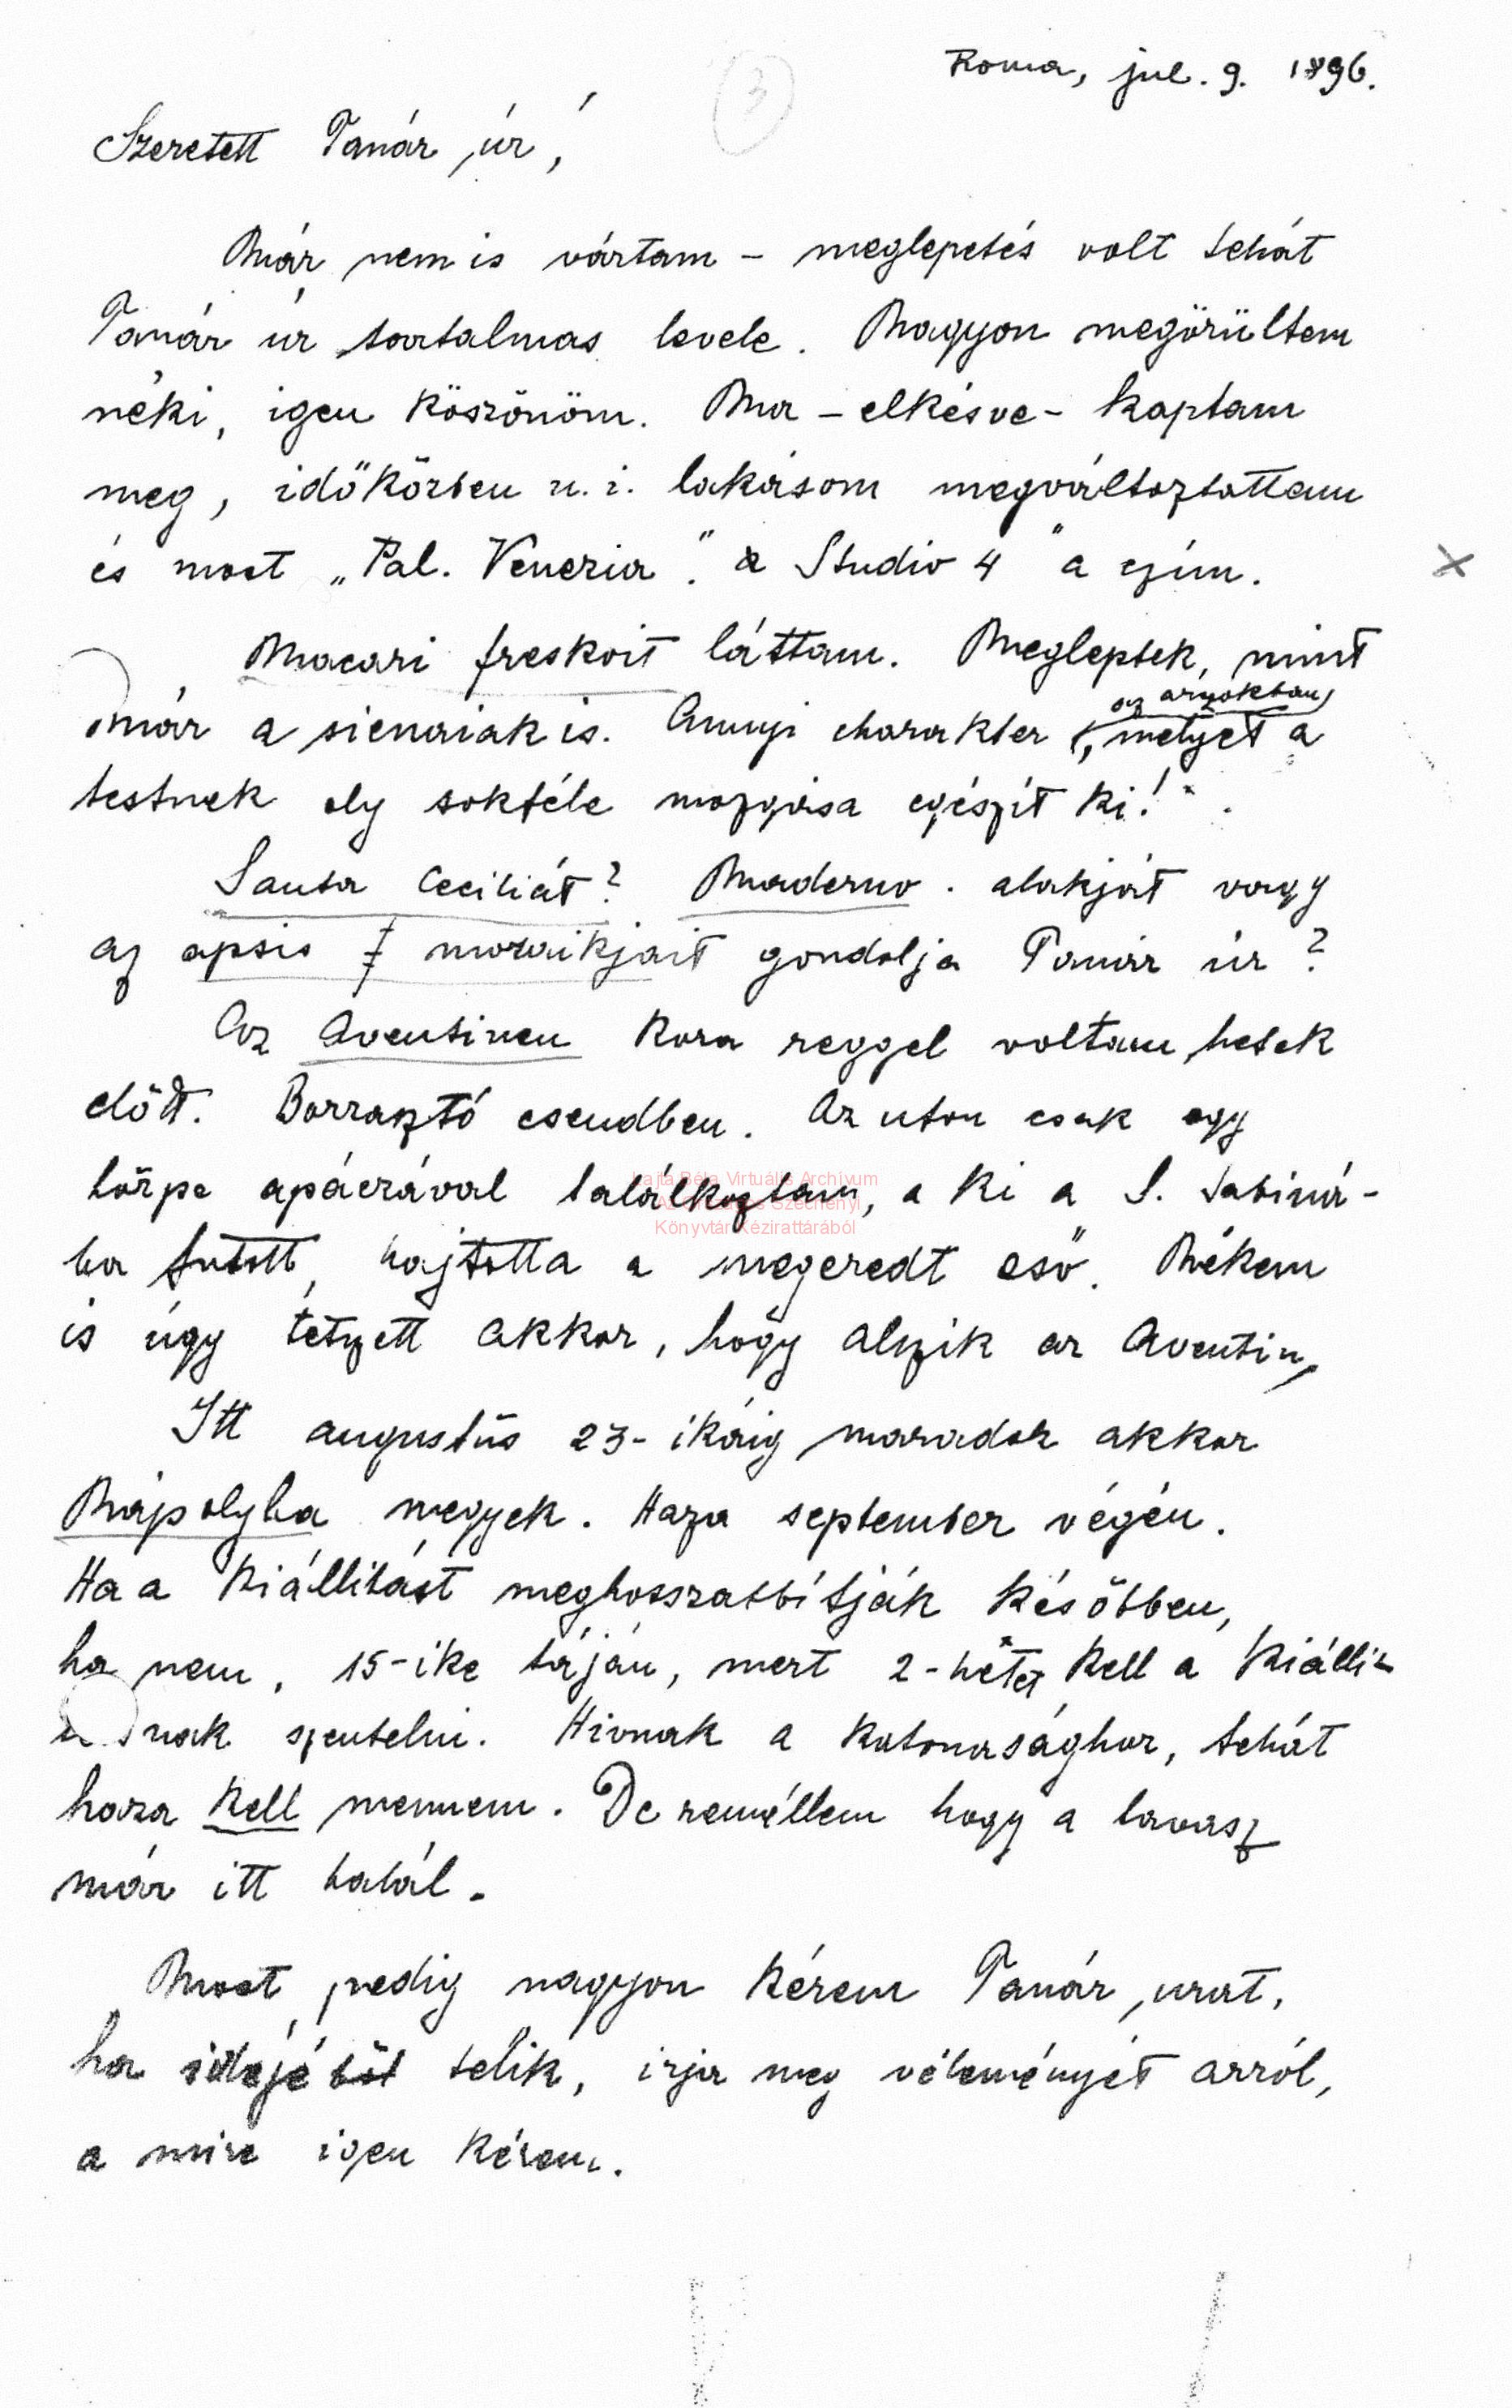 3
Roma, jul. 9. 1896.
Szeretett Tanár úr,
Már nem is vártam – meglepetés volt tehát
Tanár úr tartalmas levele. Nagyon megörültem
néki, igen köszönöm. Ma – elkésve – kaptam
meg, időközben u. i. lakásom megváltoztattam
és most „Pal. Venezia". a Studio 4" a czím.
Macari freskoit láttam. Megleptek, mint
az arczokban,
már a sienaiak is. Annyi charakter, melyet a
testnek oly sokféle mozgása egészít ki!
Santa Ceciliát? Maderno. alakját vagy
az apsis mozaikjait gondolja Tanár úr?
Az Aventinen kora reggel voltam, hetek
előtt. Borzasztó csendben. Az uton csak egy
törpe apáczával találkoztam, a ki a S. Sabiná-
ba futott, hajtotta a megeredt eső. Nékem
is úgy tétszett akkor, hogy alszik az Aventin,
Itt augustus 23-ikáig maradok akkor
Nápolyba megyek. Haza september végén.
Ha a kiállitást meghosszabbítják későbben,
ha nem, 15-ike táján, mert 2-hetet kell a kiálli-
nak szentelni. Hivnak a katonasághoz, tehát
haza kell mennem. De remélem hogy a tavasz
már itt talál.
Most pedig nagyon kérem Tanár urat,
ha idejéből telik, irja meg véleményét arról,
a mire igen kérem.
Lajta Béla Virtuális Archívum
Az Országos Széchényi
Könyvtár Kézirattárából